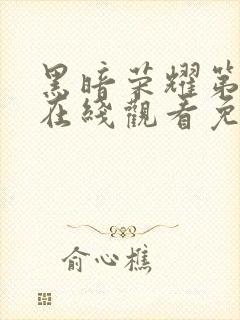 黑暗荣耀第
在线觀看免
俞心樵